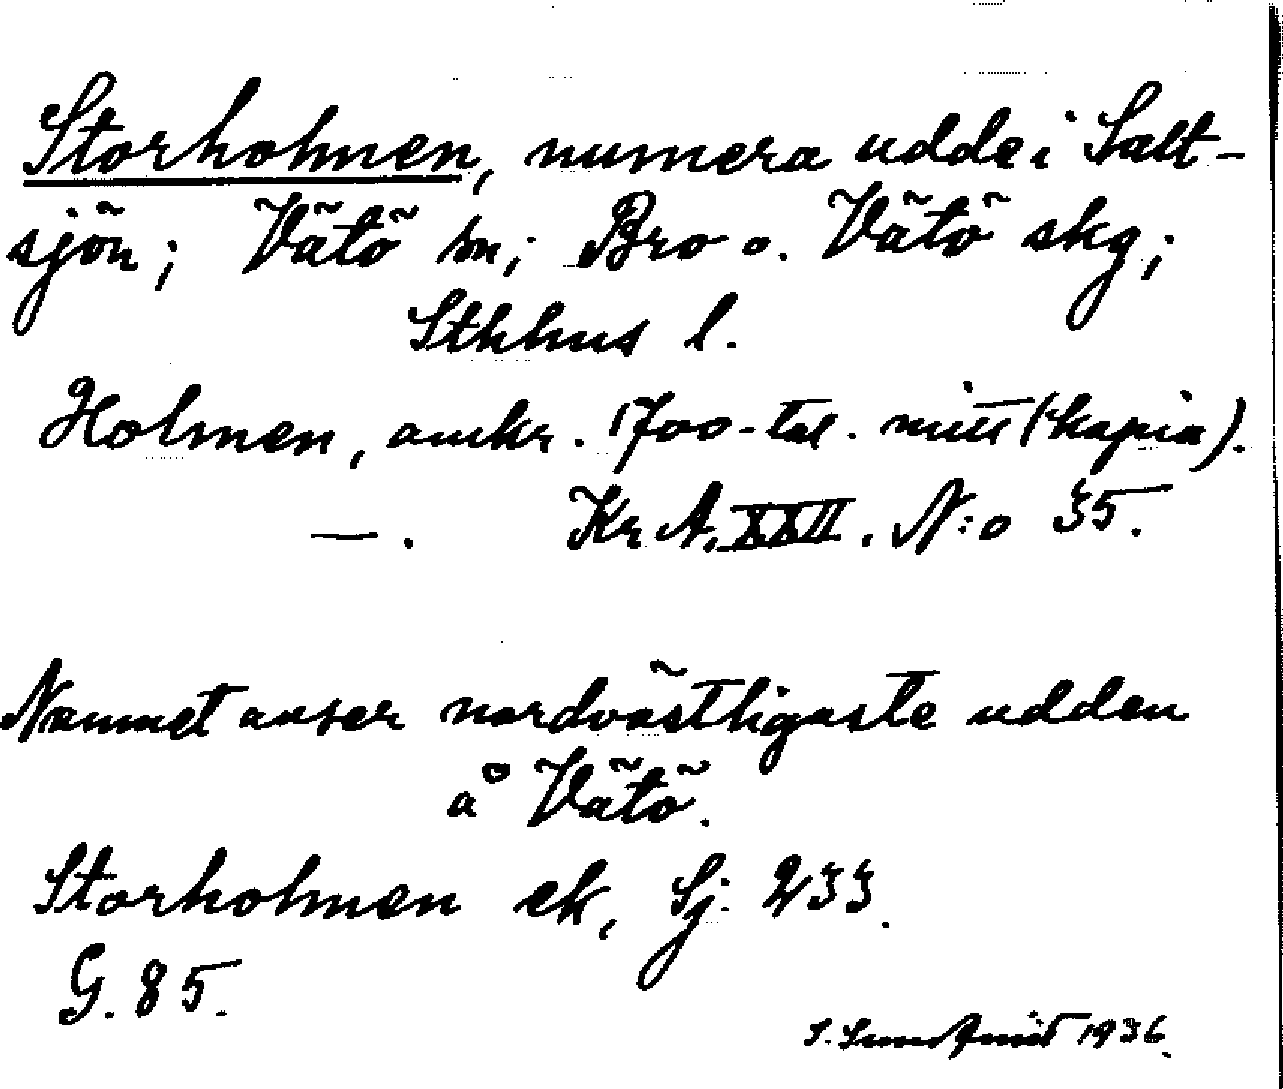 Storholmen, numera udde i Salt-
sjön; Vätö sn; Bro o. Vätö skg;
Sthlms l.
Holmen, omkr. 1700-tal. mitt (kopia).
—. Kr A, XXII. N:o 35.
Namnet avser nordvästligaste udden
å Vätö.
Storholmen ek, Sj. 233.
G. 85.
S. Sundquist 1936.